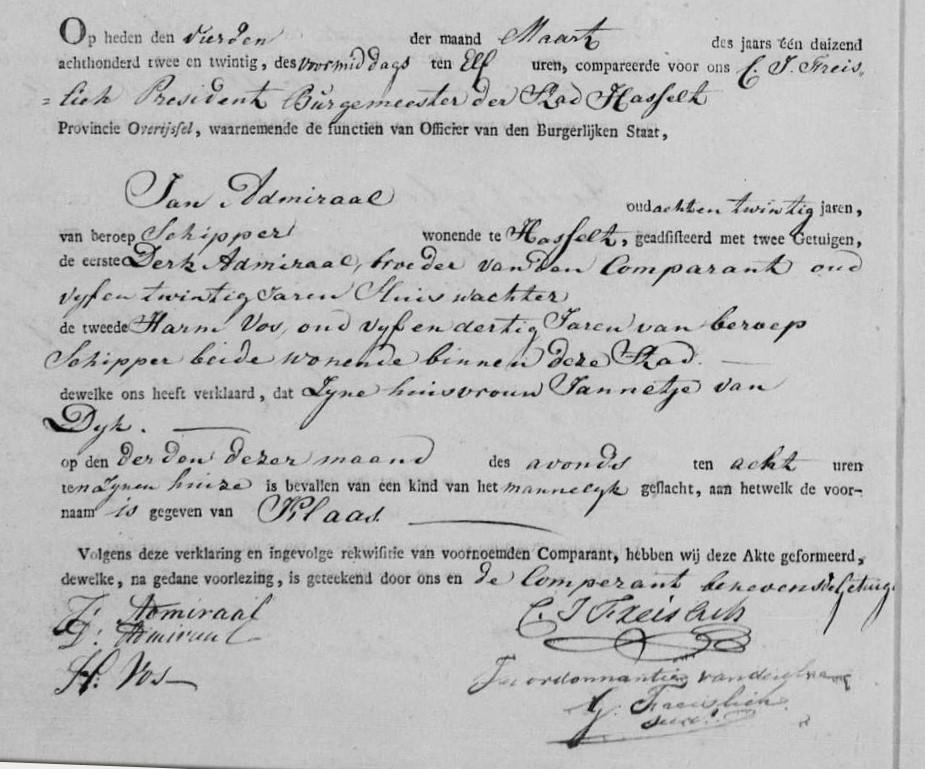 Op heden den vierden der maand Maart des jaars één duizend
achthonderd twee en twintig, des voormiddags ten Elf uren, compareerde voor ons C. J. Freis„
=lich President Burgemeester der Stad Hasselt
Provincie Overijssel, waarnemende de functien van Officier van den Burgerlijken Staat,
Jan Admiraal oud acht en twintig jaren,
van beroep Schipper wonende te Hasselt, geadsisteerd met twee Getuigen,
de eerste Derk Admiraal, broeder van den Comparant oud
vyf en twintig Jaren Huiswachter
de tweede Harm Vos, oud vyf en dertig Jaren van beroep
Schipper beide wonende binnen deze Stad. —
dewelke ons heeft verklaard, dat Zyne huisvrouw Jannetje van
Dyk. —
op den derden dezer maand des avonds ten acht uren
ten Zynen huize is bevallen van een kind van het mannelyk geslacht, aan hetwelk de voor-
naam is gegeven van Klaas. —
Volgens deze verklaring en ingevolge rekwisitie van voornoemden Comparant, hebben wij deze Akte geformeerd,
dewelke, na gedane voorlezing, is geteekend door ons en de Comperant benevens de Getuig
J: Admiraal
D: Admiraal
C. J Freislich
H: Vos
Ter ordonnantie van
G. Freislich
Secrt.